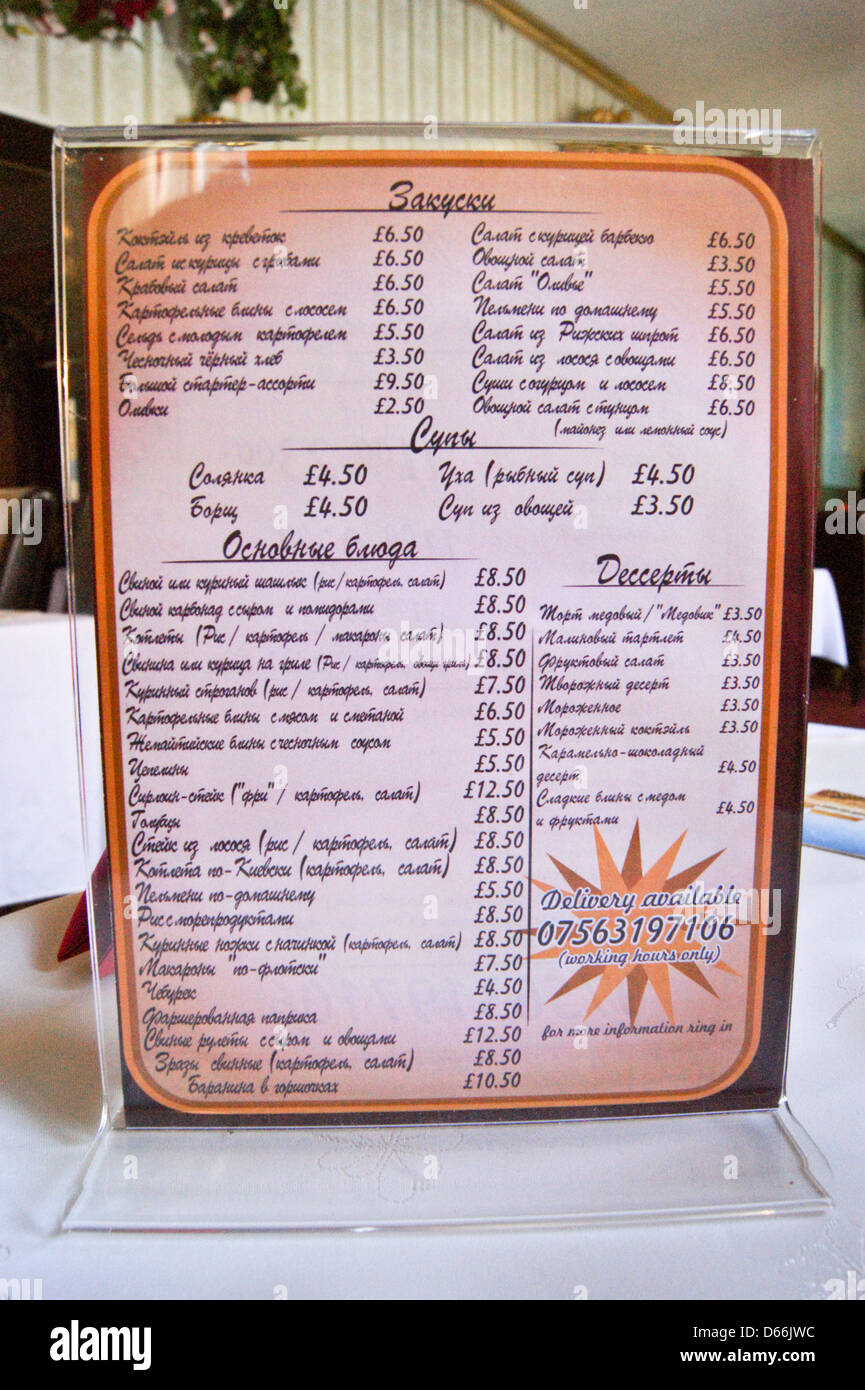 Закуски
Коктэйль из креветок £6.50
Салат ис курицы с грибами £6.50
Крабовый салат £6.50
Картофельные блины с лососем £6.50
Сельдь с молодым картофелем £5.50
Чесночный чёрный хлеб £3.50
Большой стартер-ассорти £9.50
Оливки £2.50
Салат с курицей барбекю £6.50
Овощной салат £3.50
Салат "Оливье" £5.50
Пельмени по домашнему £5.50
Салат из Рижских шпрот £6.50
Салат из лосося с овощами £6.50
Суши с огурцом и лососем £8.50
Овощной салат с тунцом £6.50
(майонез или лемонный соус)
Супы
Солянка £4.50
Борщ £4.50
Уха (рыбный суп) £4.50
Суп из овощей £3.50
Основные блюда
Свиной или куриный шашлык (рис/картофель, салат) £8.50
Свиной карбонад с сыром и помидорами £8.50
Котлеты (Рис / картофель / макароны салат) £8.50
Свинина или курица на гриле (Рис / картофель, овощи гриля) £8.50
Куринный строганов (рис / картофель, салат) £7.50
Картофельные блины с мясом и сметаной £6.50
Жемайтийские блины с чесночным соусом £5.50
Цепелины £5.50
Сирлоин-стейк ("фри" / картофель, салат) £12.50
Голубцы £8.50
Стейк из лосося (рис / картофель, салат) £8.50
Котлета по-Киевски (картофель, салат) £8.50
Пельмени по-домашнему £5.50
Рис с морепродуктами £8.50
Куринные ножки с начинкой (картофель, салат) £8.50
Макароны "по-флотски" £7.50
Чебурек £4.50
Фаршерованная паприка £8.50
Свиные рулеты с сыром и овощами £12.50
Зразы свинные (картофель, салат) £8.50
Баранина в горшочках £10.50
Дессерты
Торт медовый/"Медовик" £3.50
Малиновый тартлет £4.50
Фруктовый салат £3.50
Творожный десерт £3.50
Мороженное £3.50
Мороженный коктэйль £3.50
Карамельно-шоколадный
десерт £4.50
Сладкие блины с медом
и фруктами £4.50
Delivery available
07563197106
(working hours only)
for more information ring in
alamy
a
alamy
www.alamy.com
Image ID: D66JWC